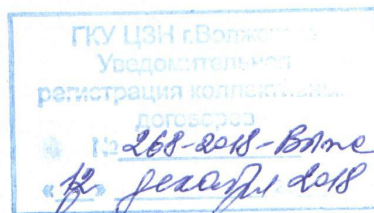 ГКУ ЦЗН г.Волжского
Уведомительная
регистрация коллективных
договоров
№ 268-2018-Волж
«12» декабря 2018